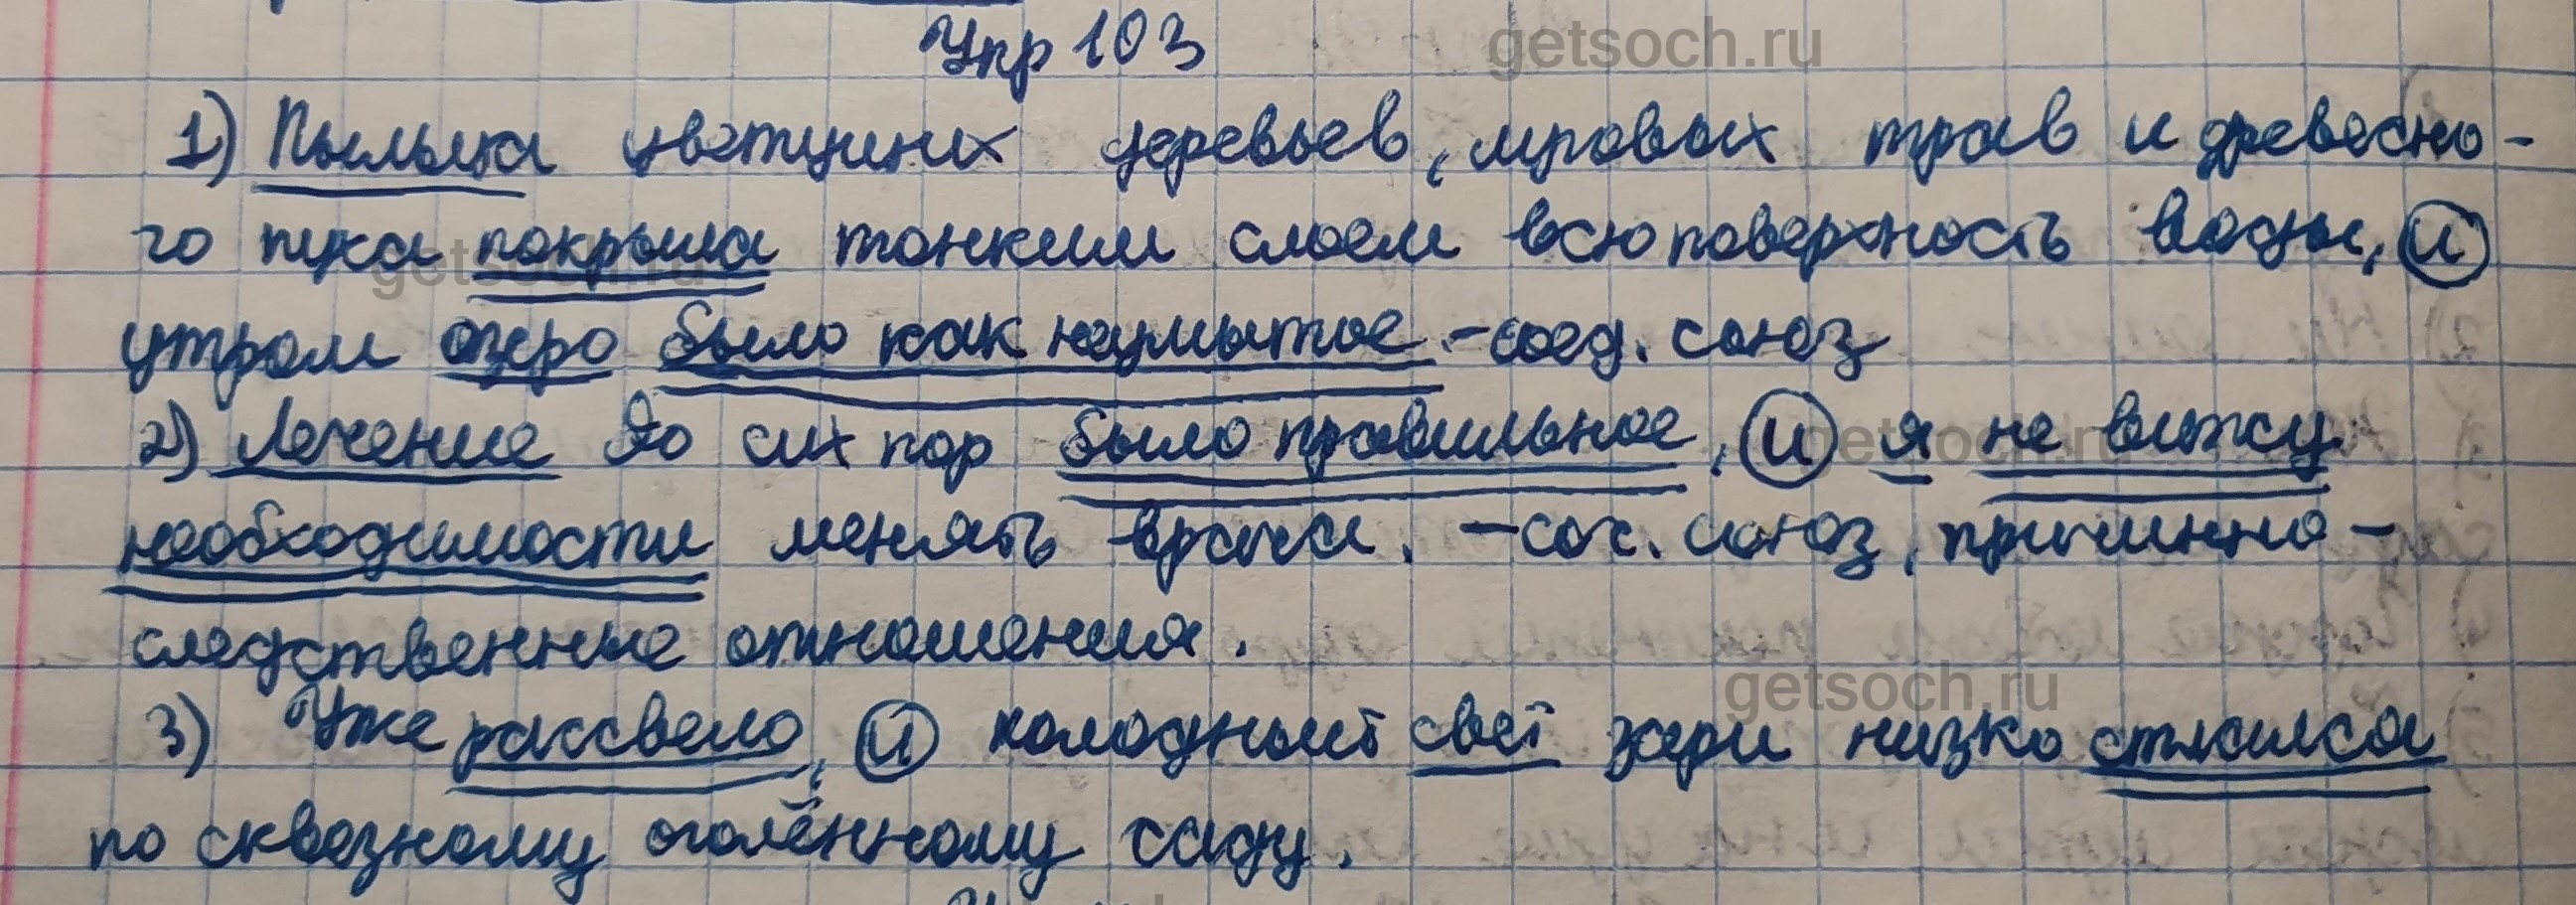 Упр 103
getsoch.ru
1) Пыльца цветущих деревьев, луговых трав и древесно-
го пуха покрыла тонким слоем всю поверхность воды, и
getsoch.ru
утром озеро было как неумытое. - соед. союз
2) Лечение до сих пор было правильное, и я не вижу
getsoch.ru
необходимости менять врача. - соч. союз, причинно-
следственные отношения.
getsoch.ru
3) Уже рассвело, и холодный свет зари низко стлался
по сквозному оголённому саду.